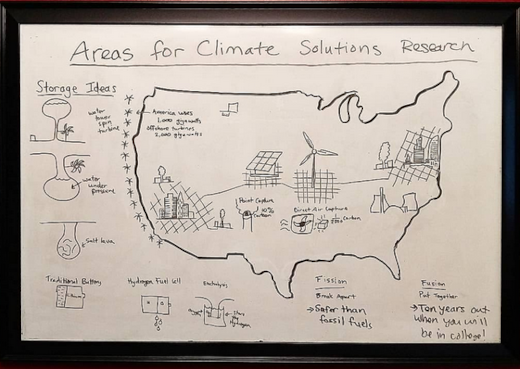 Areas for Climate Solutions Research
Storage Ideas
water
tower
spin
turbine
water
under
pressure
Salt lava
America uses
1,000 gigawatts
Offshore turbines
2,000 gigawatts
Point Capture
10%
Carbon
Direct Air Capture
Carbon
Traditional Battery
Hydrogen Fuel Cell
Electrolysis
Hydrogen
Fission
Break Apart
→Safer than
fossil fuels
Fusion
Put Together
→Ten years out
when you will
be in college!